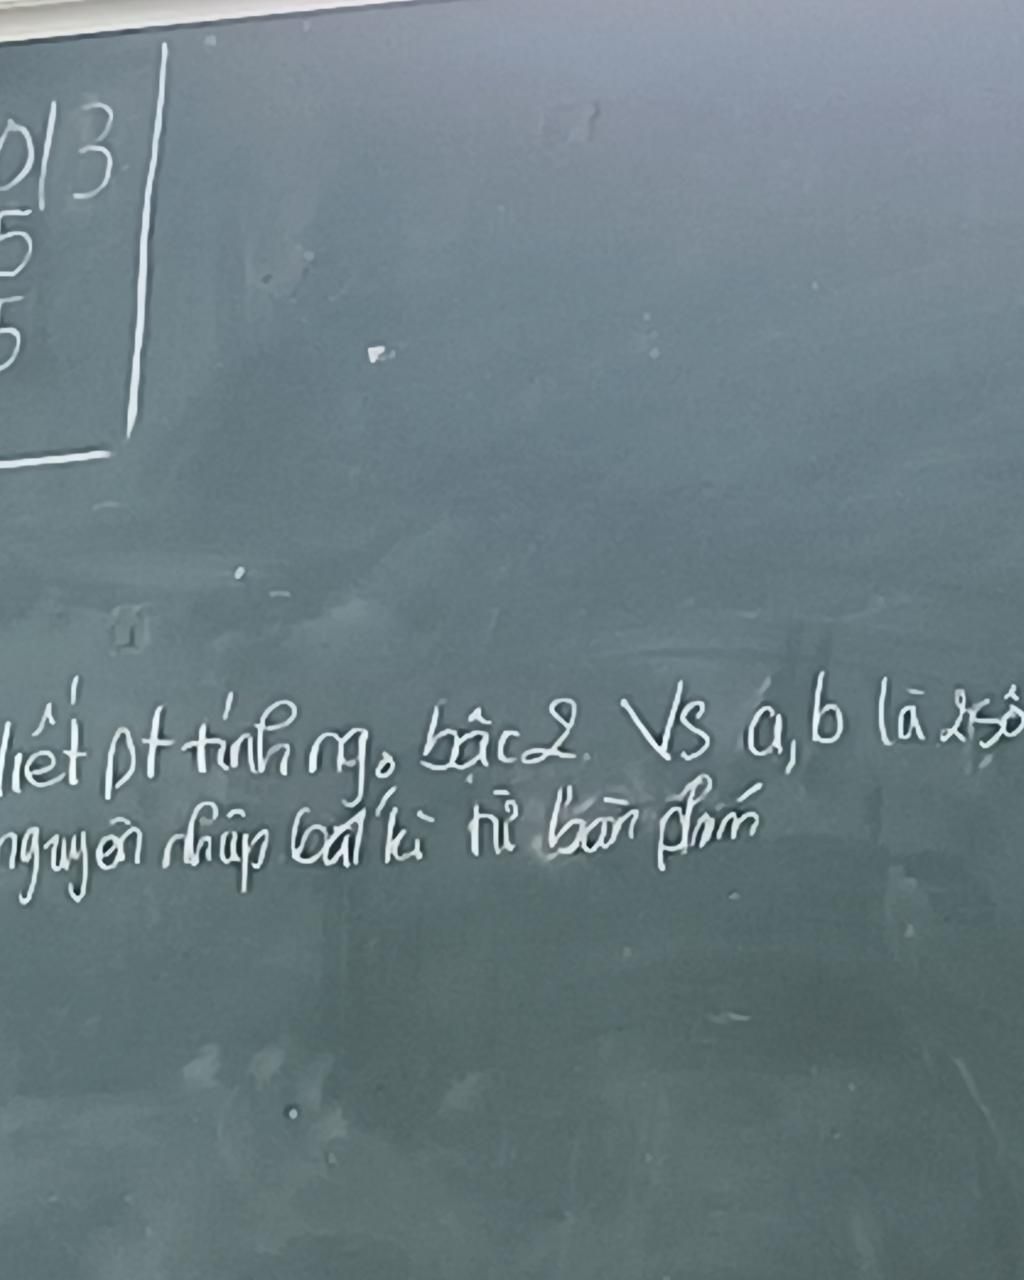 0/3
5
5
liết pt tính ng. bậc 2. Vs a, b là 2 số
nguyên nhập bất kì từ bàn phím